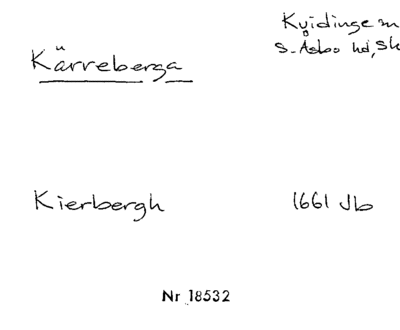 Kvidinge sn
Kärreberga
S. Åsbo hd, Sk
Kierbergh
1661 Jb
Nr 18532